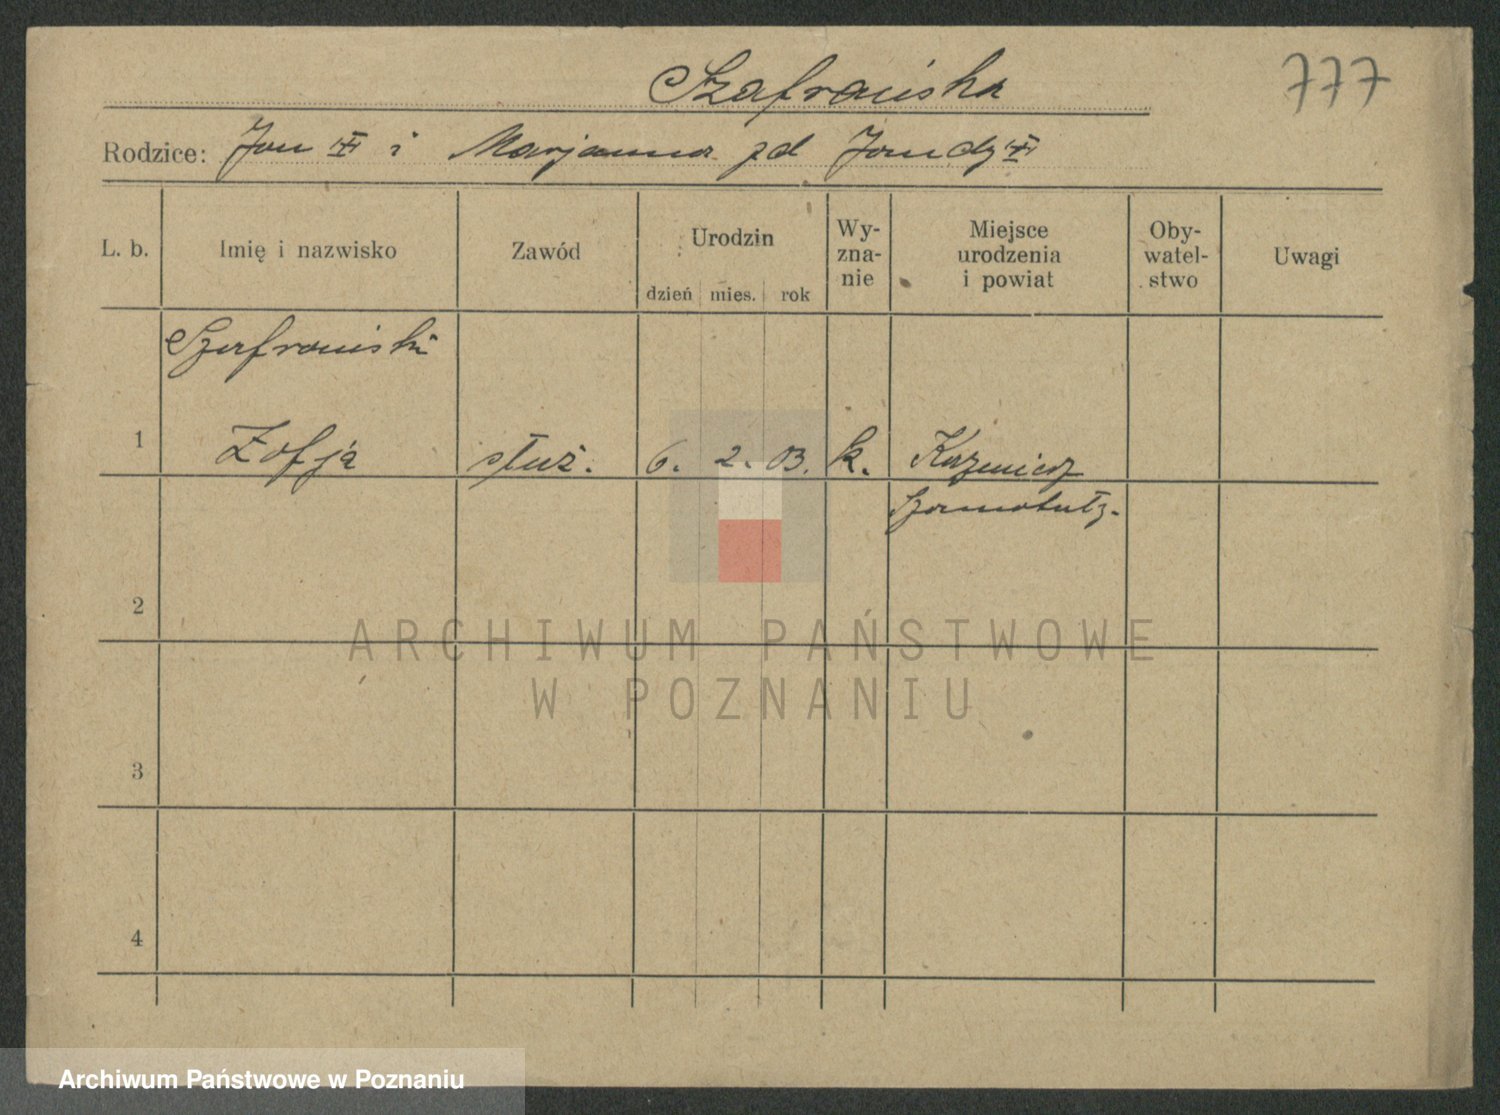 Szafrańska
777
Rodzice: Jan i Marjanna zd Jandy
L. b.
Imię i nazwisko
Zawód
Urodzin
dzień mies. rok
Wy-
zna-
nie
Miejsce
urodzenia
i powiat
Oby-
watel-
stwo
Uwagi
Szafrański
1 Zofja służ. 6. 2. 03. k. Kazmierz
Szamotuły.
2
3
4
ARCHIWUM PAŃSTWOWE
W POZNANIU
Archiwum Państwowe w Poznaniu